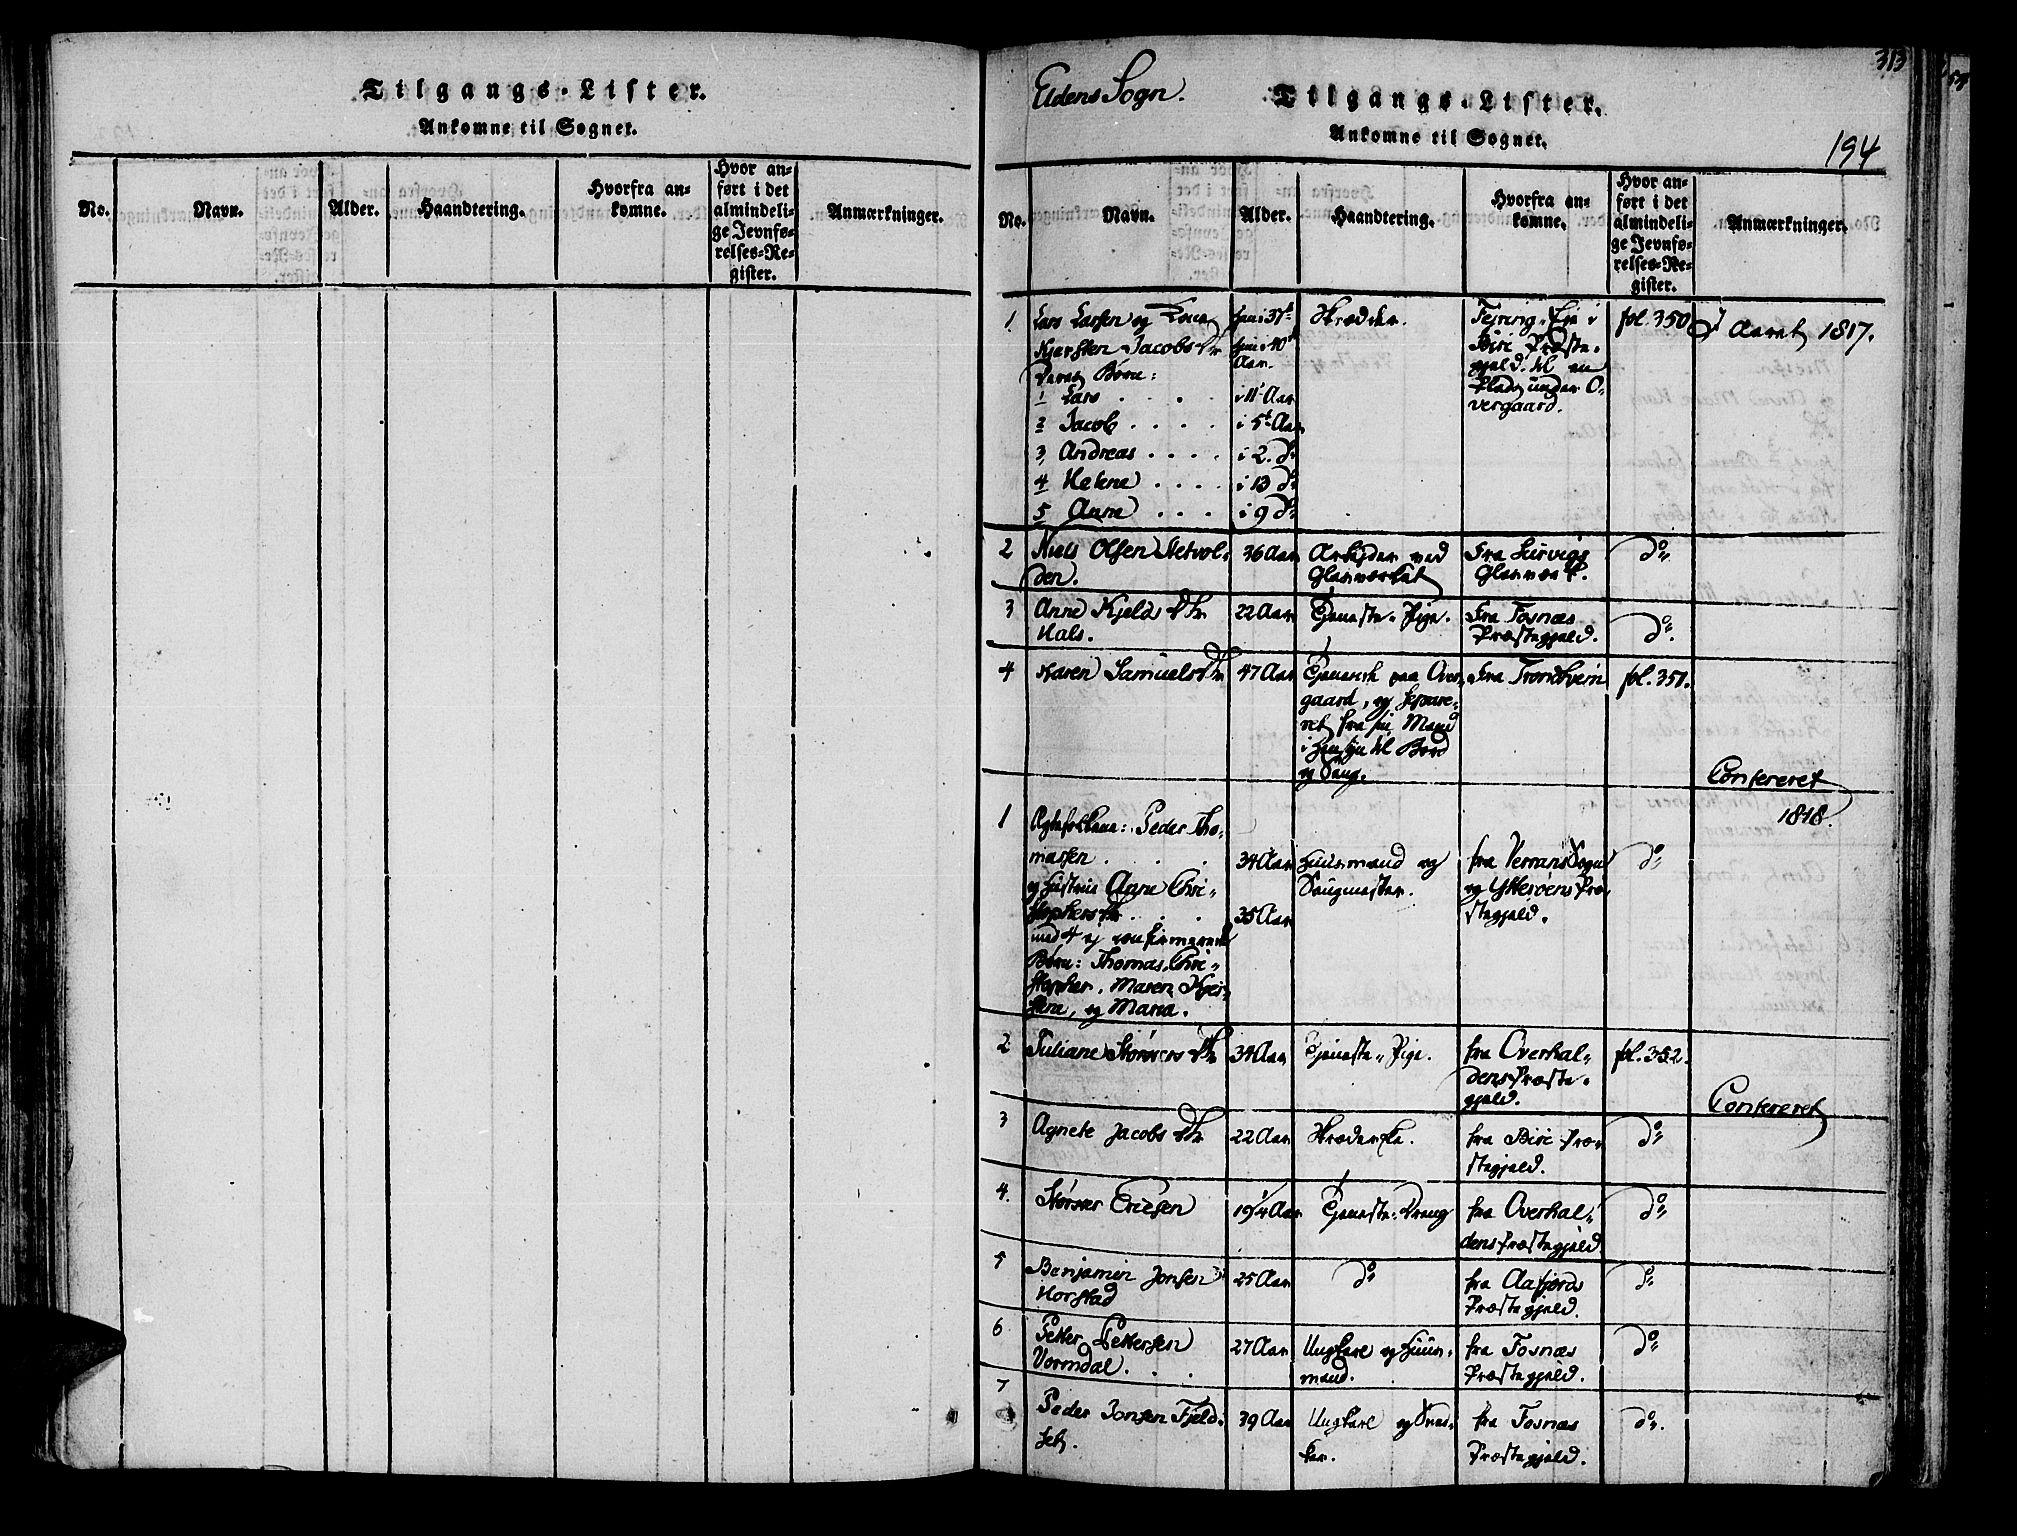 Tilgangs-Lister.
Ankomne til Sognet.
No.
Navn.
Alder.
Haandtering.
Hvorfra an-
komne.
Hvor an-
ført i det
almindeli-
ge Jevnfø-
relses-Re-
gister.
Anmærkninger.
313
Eidens Sogn.
Tilgangs-Lister.
Ankomne til Sognet.
194
No.
Navn.
Alder.
Haandtering.
Hvorfra an-
komne.
Hvor an-
ført i det
almindeli-
ge Jevnfø-
relses-Re-
gister.
Anmærkninger.
1. Lars Larsen og Kone Kjersten Jacobs Dr Deres Børn:
1 Lars . . . . i 11t Aar
2 Jacob . . . . i 5t Aar
3, Andreas . . . . i 2. Do
4 Helene . . . . i 13 Do
5 Anne . . . i 9 Do
i 37t
i 40t
Aar.
Skrædder.
i
Biri Præste-
gjeld. til en
Plads under O-
vergaard.
fol. 350
I Aaret 1817.
2 Niels Olsen Setvol-
den.
36 Aar
Arbejder ved
Glasværket
Fra Hurvigs
Glasværk.
do
3 Anne Kjelds Dtr
Hals.
22 Aar
Tjeneste-Pige.
Fra Fosnæs
Præstegjeld.
do.
4 Karen Samuels Dtr
47 Aar
Tjenende paa Over-
gaard, og separe-
ret fra sin Mand
i Hensyn til Bord
og Seng.
Fra Trondhiem
fol. 351.
Confereret
1818.
1 Ægtefolkene: Peder Tho-
massen . . .
og Hustrue Anne Chri-
stophers Dtr . . .
med 4 ej confirmerede
Børn: Thomas, Chri-
stopher, Maren Kjer-
stine, og Maria.
34 Aar
35 Aar
Huusmand og
Saugmester.
fra Verrans Sogn
og Ytterøens Præ-
stegjeld.
do
2 Juliane Størkers Dtr
34 Aar
Tjeneste-Pige.
fra Overhal-
dens Præste-
gjeld.
fol. 352.
Confereret
3 Agnete Jacobs Dtr
22 Aar
Skræderske.
fra Biri Præ-
stegjeld.
do
4. Størker Ericsen
19 1/4 Aar
Tjeneste-Dreng
fra Overhal-
dens Præstegjeld.
do
5 Benjamin Jonsen
Horstad
25 Aar
do
fra Aafjords
Præstegjeld.
do
6 Petter Pettersen
Vormdal . . .
27 Aar
Ungkarl og Huus-
mand.
fra Fosnæs
Præstegjeld.
do
7 Peder Jonsen Fjeld-
set.
39 Aar
Ungkarl og Sned-
ker.
fra Fosnæs
Præstegjeld.
do.